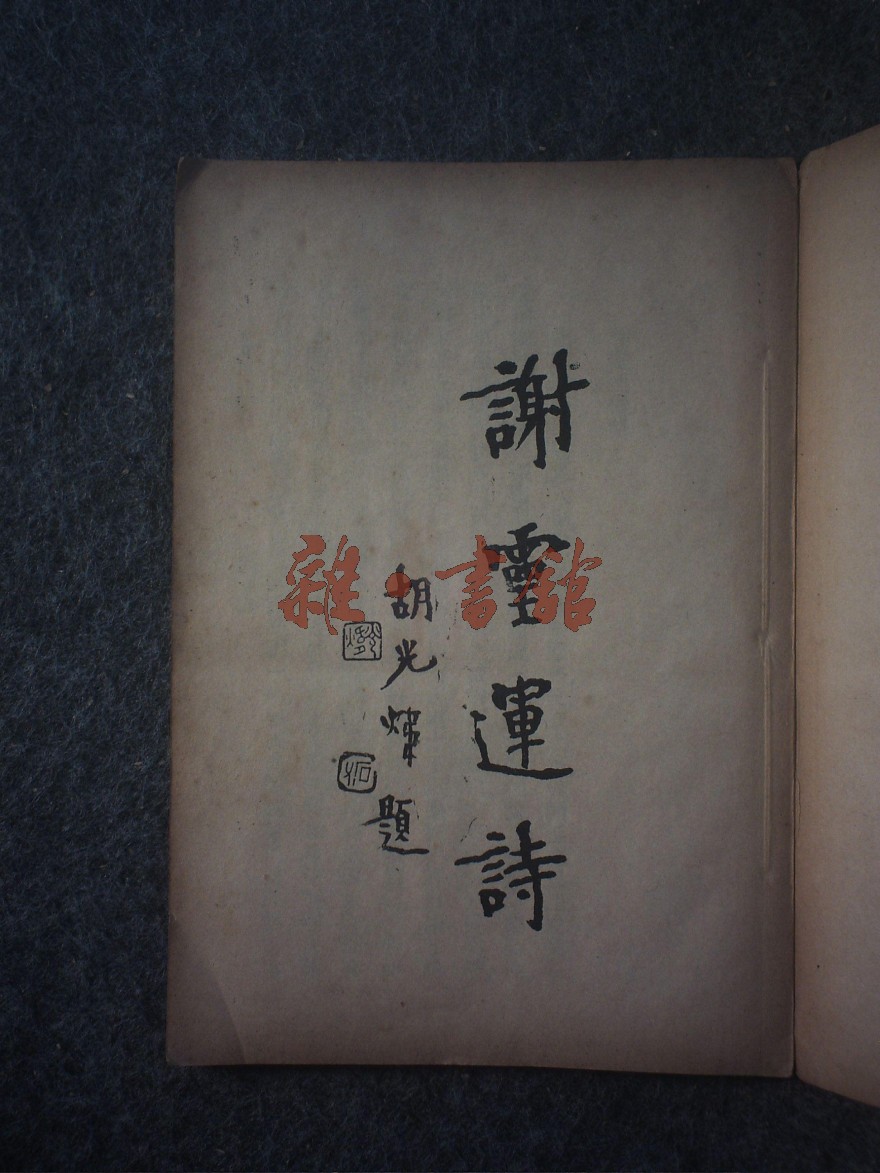 謝靈運詩
胡光煒題
雜·書館